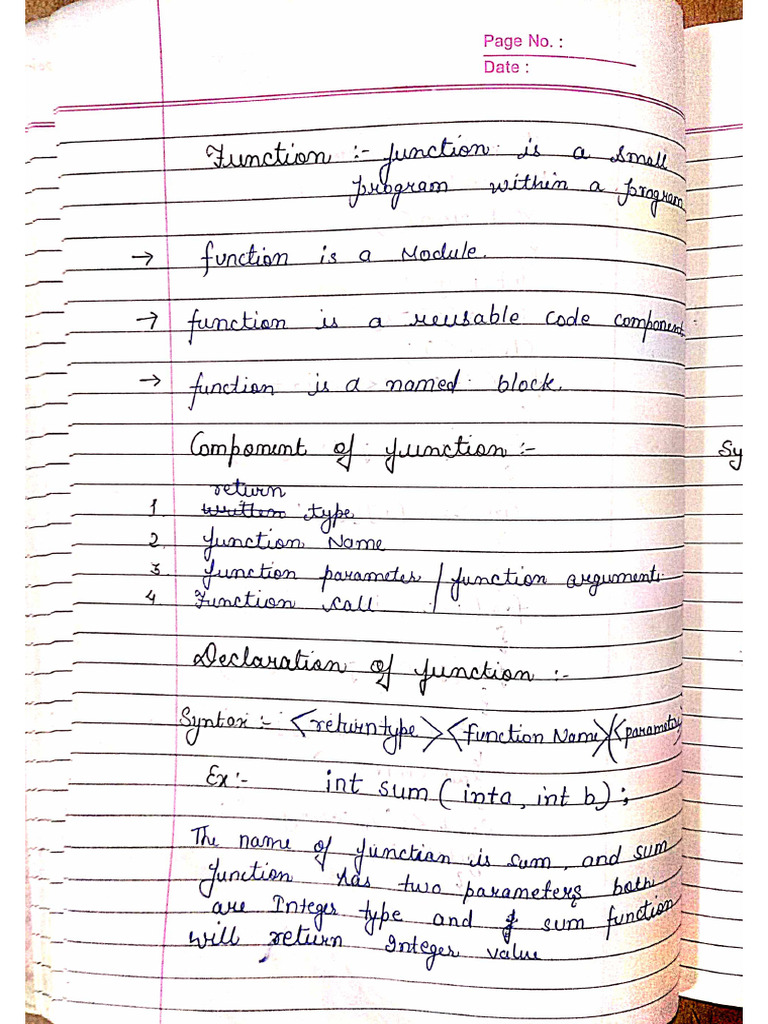 Page No. :
Date :
Function :- function is a small
program within a program
→ function is a Module.
→ function is a reusable code component
→ function is a named block.
Component of function :-
Sy
return
1. written type
2. function Name
3. function parameter / function arguments
4. Function call
Declaration of function :-
Syntax :- <returntype> <function Name> (<parameter>
Ex :- int sum ( inta, int b) ;
The name of function is sum, and sum
function has two parameters both
are Integer type and sum function
will return Integer value